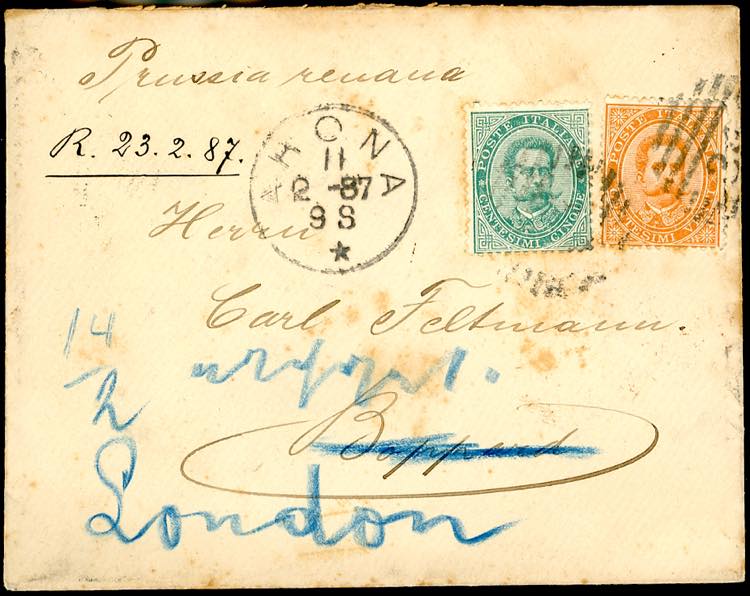 Prussia renana
R. 23.2.87.
ARONA
11
2 -87
9 S
POSTE ITALIANE
CENTESIMI CINQUE
POSTE ITAL
TESIMI V
Herrn
Carl Feltmann.
14
2
Boppard
London